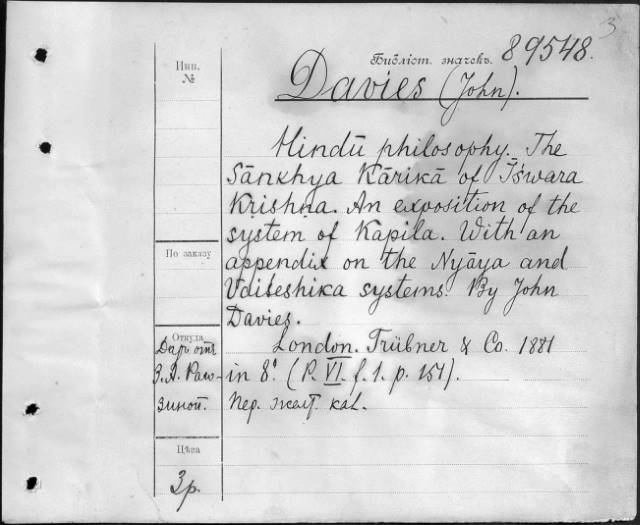 3
Библіот. значекъ. 89548.
Инв.
№
Davies (John).
Hindū philosophy. The
Sānkhya Kārikā of Īśwara
Krishṇa. An exposition of the
system of Kapila. With an
По заказу
appendix on the Nyāya and
Vaiśeshika systems. By John
Davies.
Откуда
Даръ отъ
London. Trübner & Co. 1881
З. А. Раго-
in 8°. (P. VI. f. 1. p. 151).
зиной.
Пер. желт. кал.
Цѣна
3р.